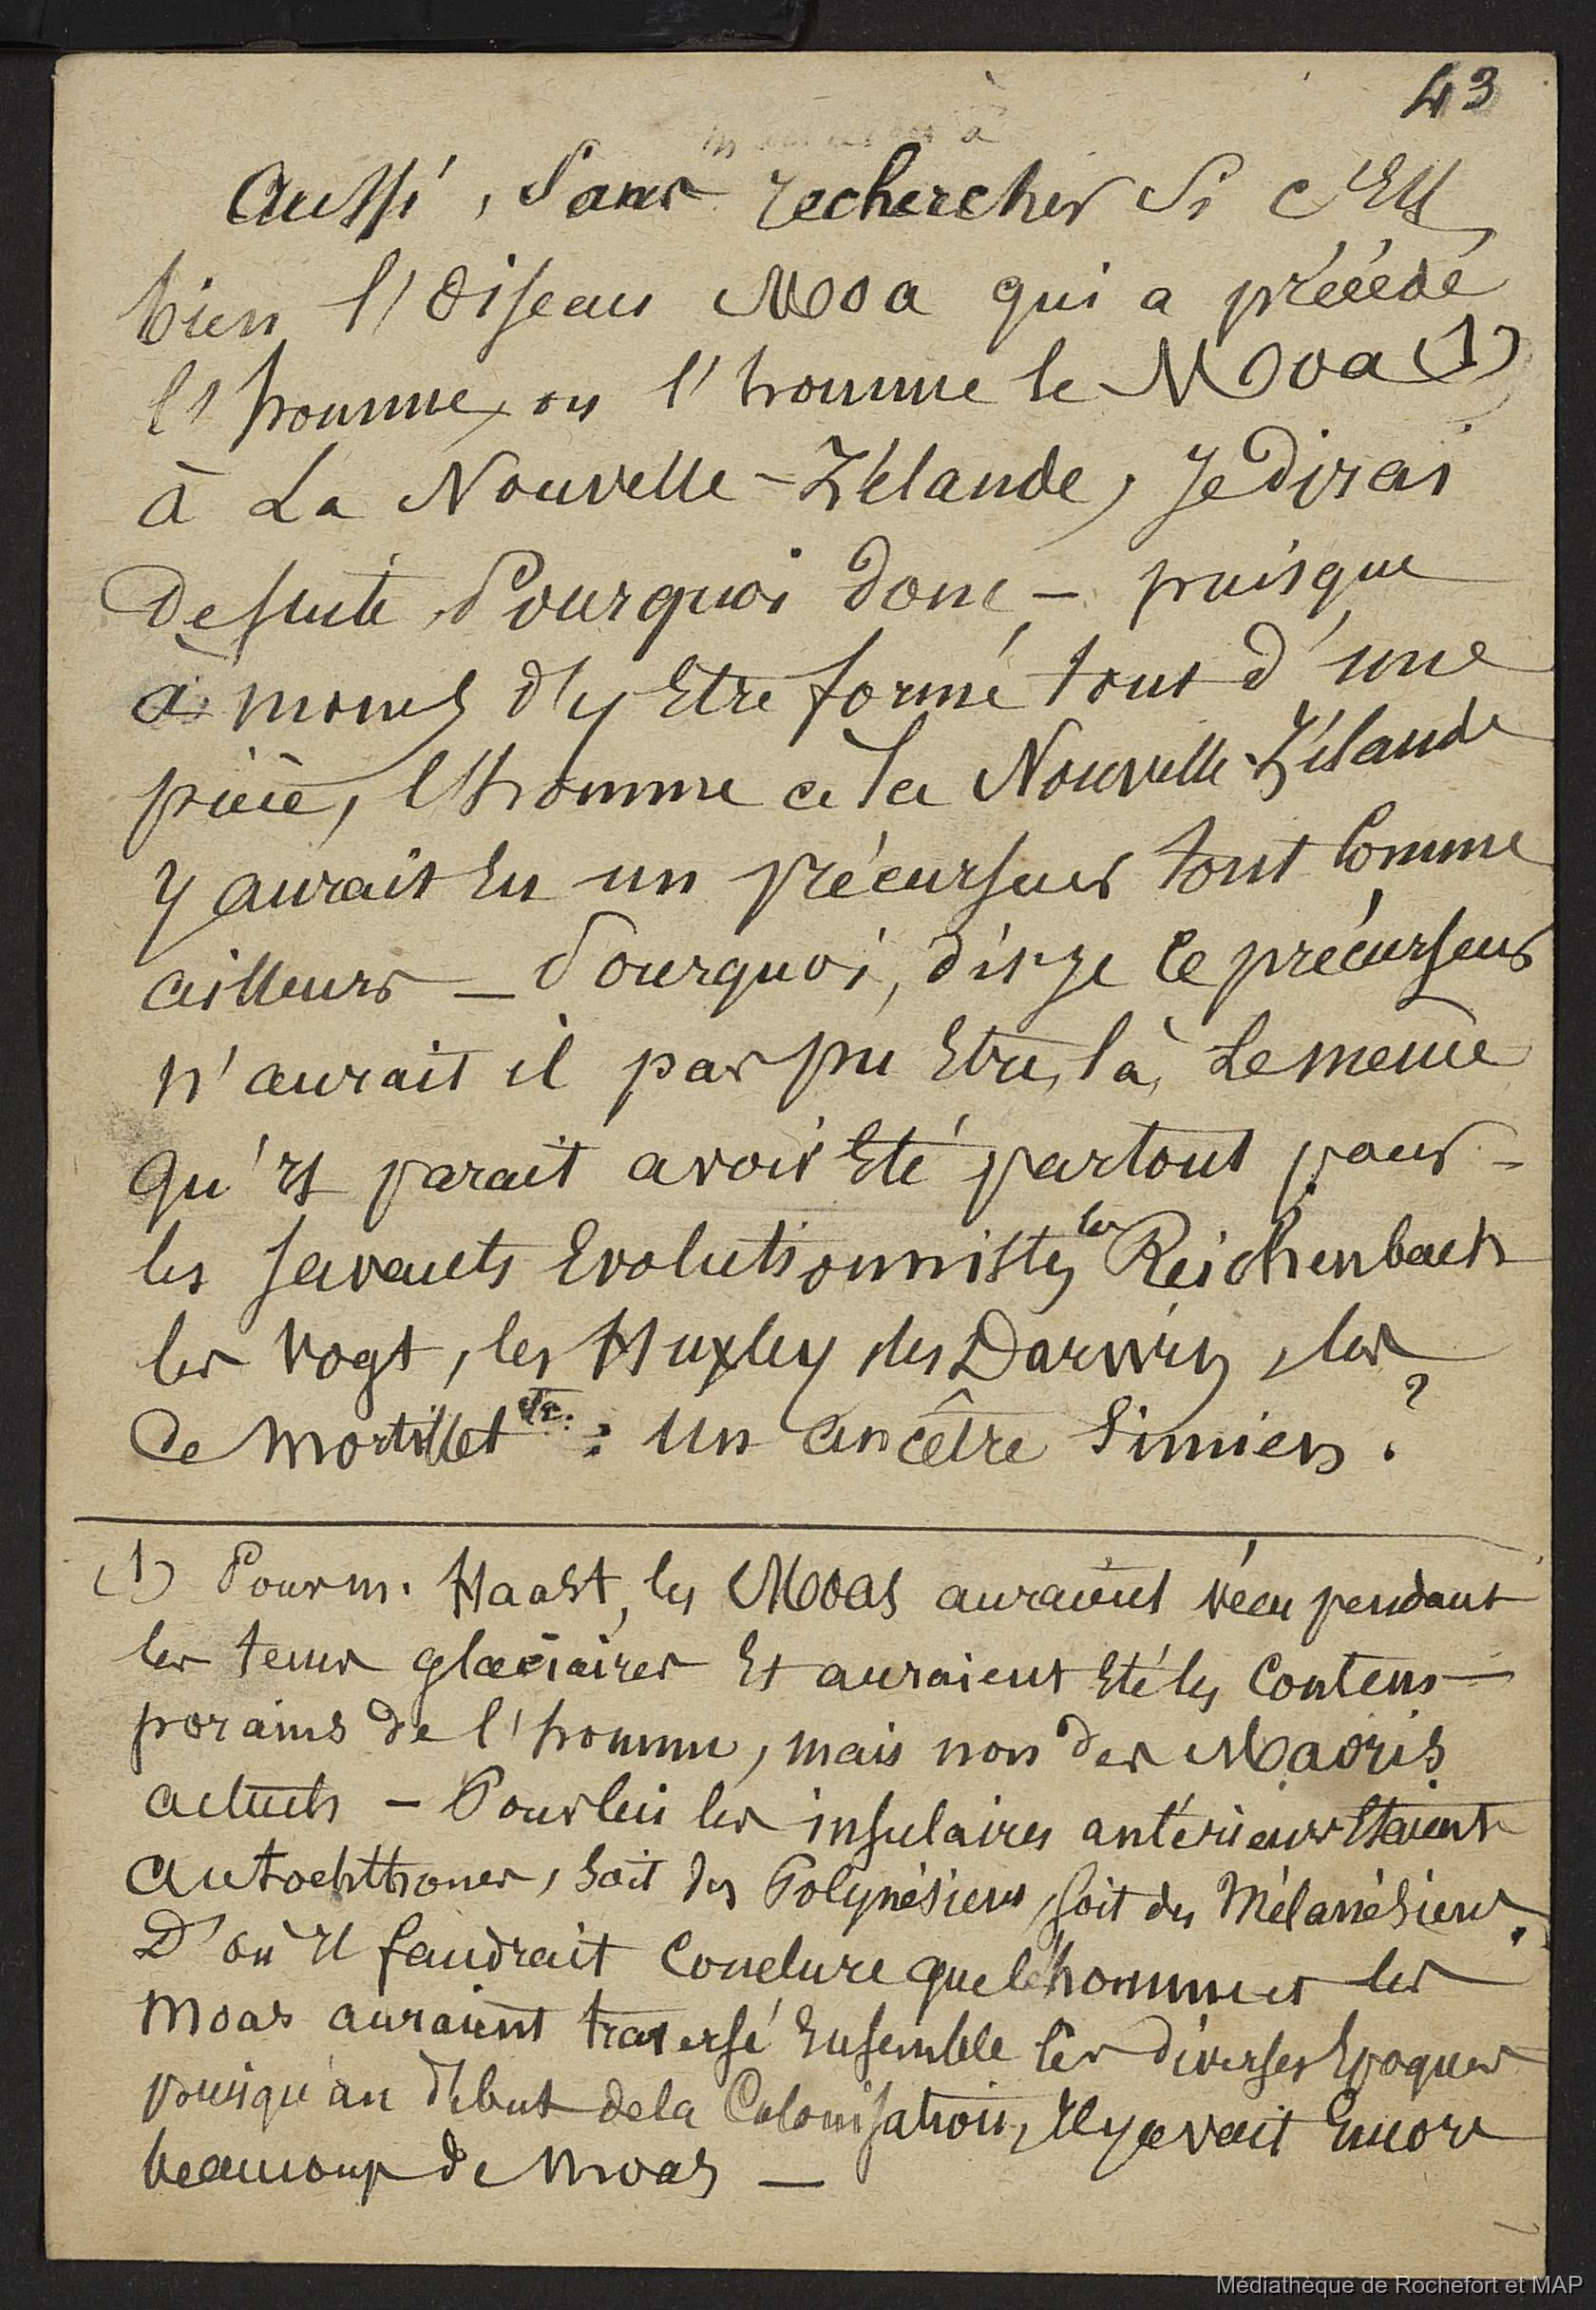 43
Aussi, Sans rechercher Si c'Est
bien l'Oiseau Moa qui a précédé
l'homme, ou l'homme le Moa (1)
à La Nouvelle-Zélande, Je dirai
De suite Pourquoi donc - puisque
à moins d'y Etre formé tout d'une
pièce, l'homme à la Nouvelle-Zélande
y aurait Eu un précurseur tout Comme
ailleurs — Pourquoi, dis-je Ce précurseur
n'aurait il pas pu Etre, là, Le même
qu'Il parait avoir Eté partout pour -
les savants Evolutionnistes les Reichenbach
les Vogt, les Huxley, les Darwin, les
De Mortillet etc. : Un ancêtre Simien ?
(1) Pour m. Haast, les Moas auraient vécu pendant
les tems glaciaires Et auraient Eté les Contem-
porains de l'homme, mais non des Maoris
actuels — Pour lui les insulaires antérieurs Etaient
autochthones, Soit des Polynésiens, soit des Mélanésiens.
D'où Il faudrait Conclure que l'homme et les
Moas auraient traversé Ensemble les diverses Epoques
puisqu'au début de la Colonisation, Il y avait Encore
beaucoup de Moas —
Médiathèque de Rochefort et MAP